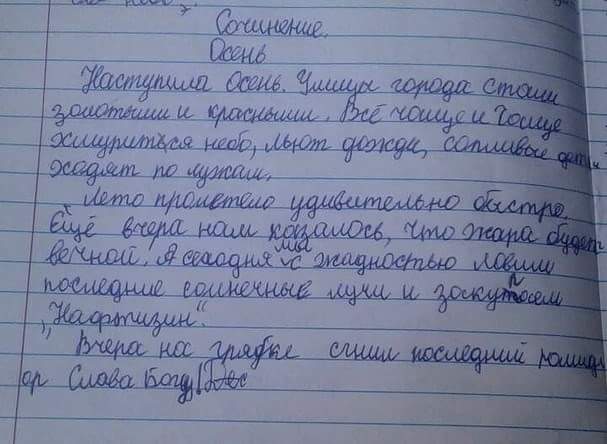 Сочинение.
Осень
Наступила осень. Улицы города стали
золотыми и красными. Всё чаще и чаще
хмуриться небо, льют дожди, сопливые дети
ходят по лужам.
Лето пролетело удивительно быстро.
Ещё вчера нам казалось, что жара будет
вечной. А сегодня мы с жадностью ловим
последние солнечные лучи и
"Нафтизин".
Вчера на грядке сгнил последний помид
ор Слава Богу!